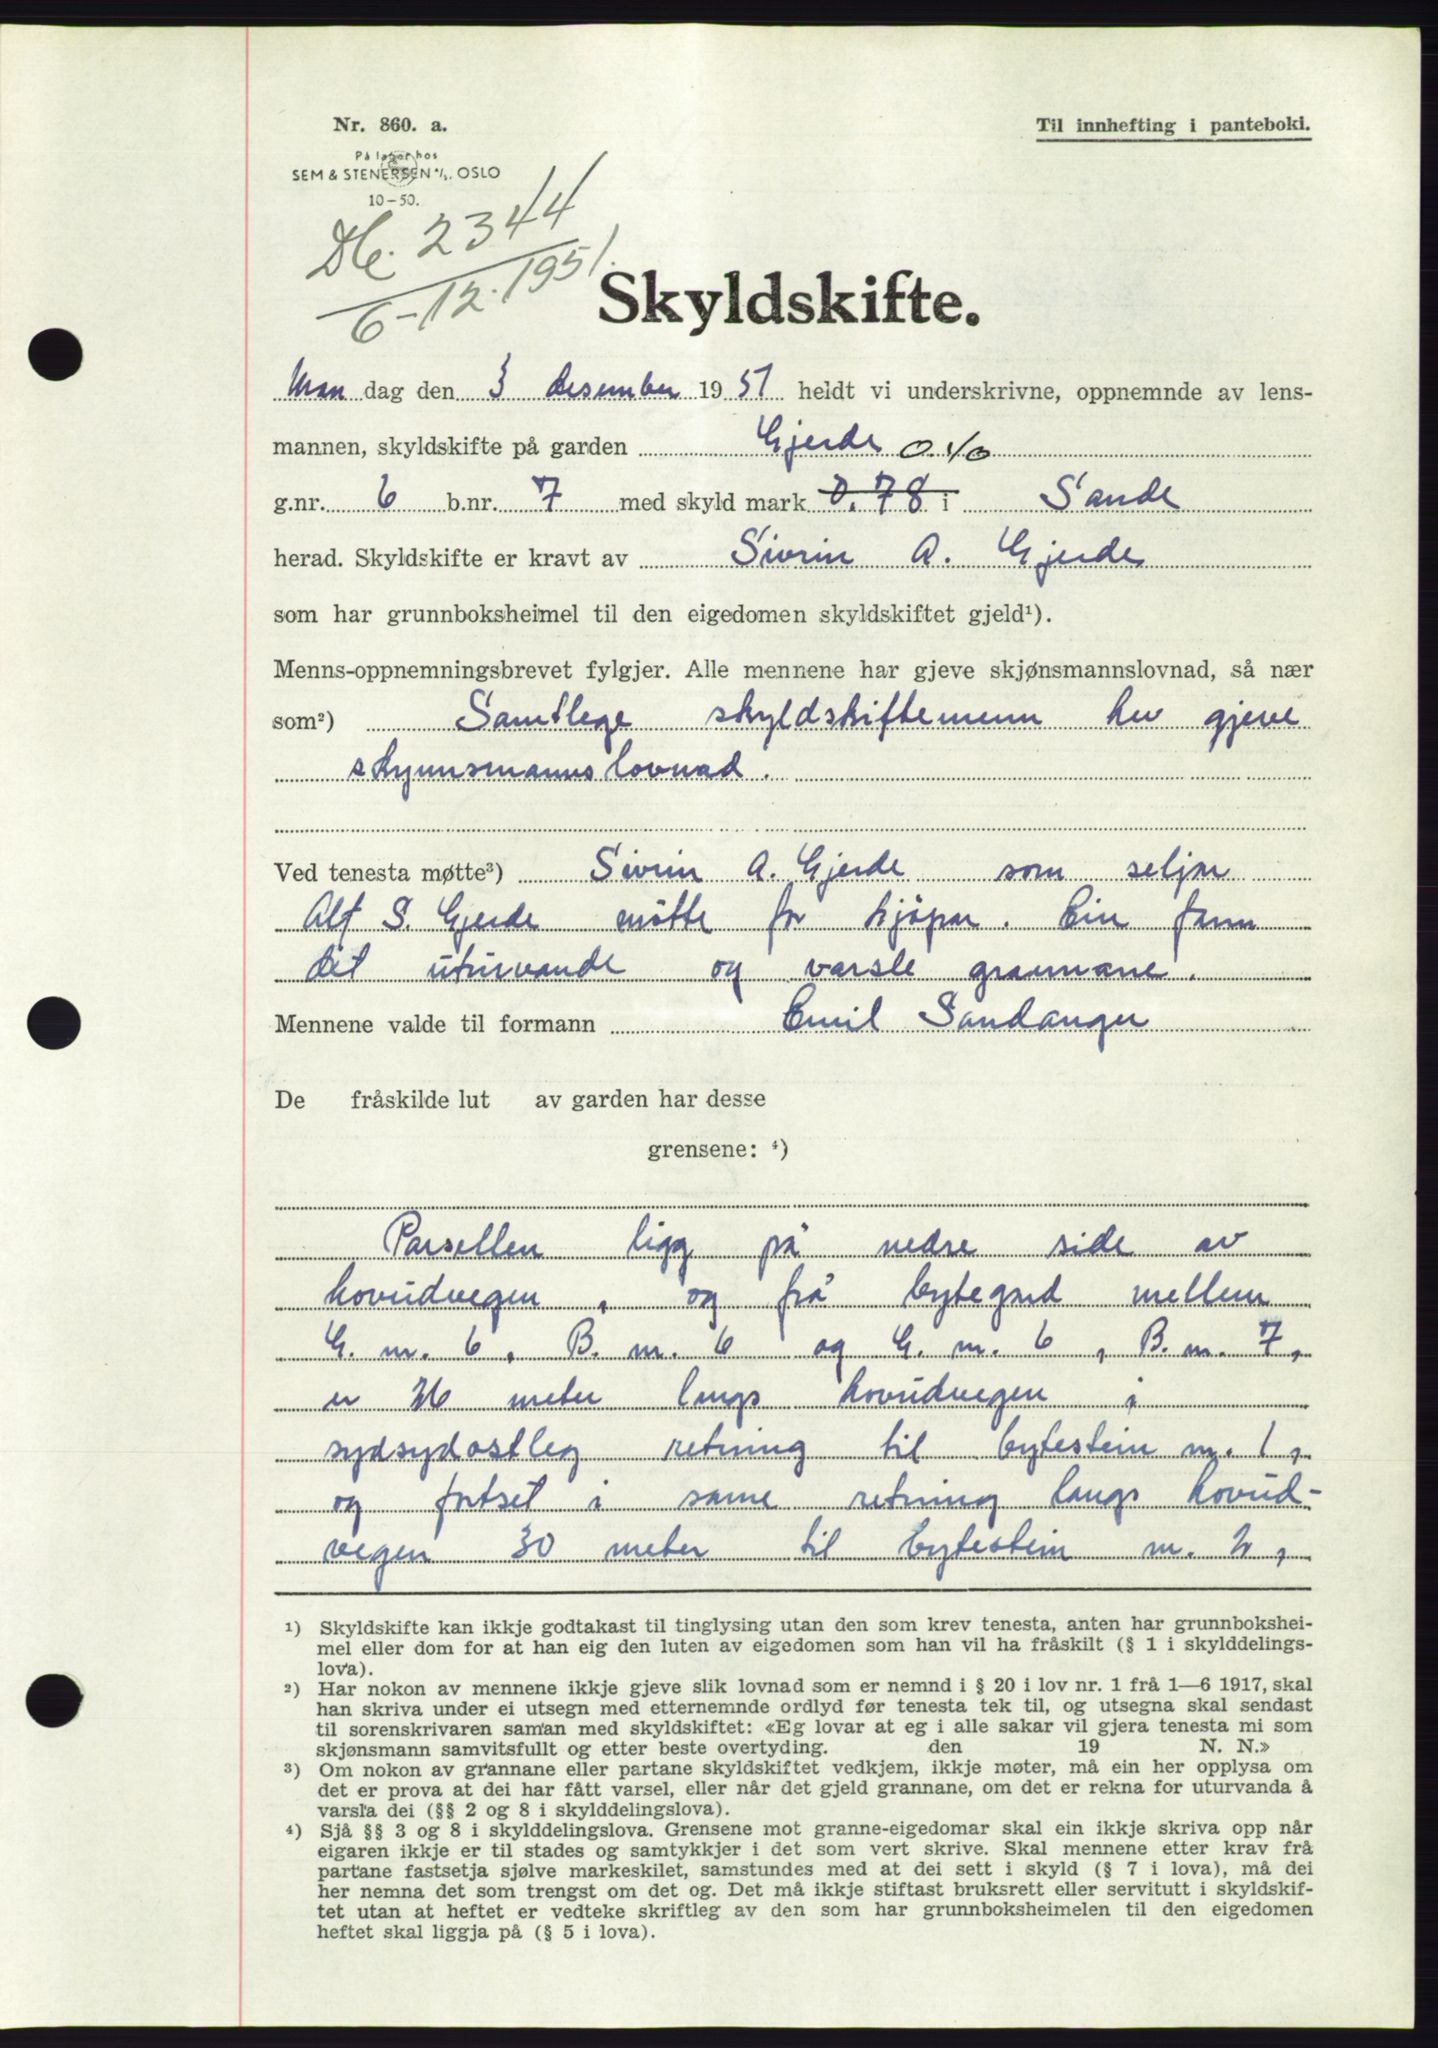 Nr. 860. a.
Til innhefting i panteboki.
På lager hos
SEM & STENERSEN A/S. OSLO
10-50.
Db. 2344
6-12-1951.
Skyldskifte.
Man dag den 3 desember 1951 heldt vi underskrivne, oppnemnde av lens-
mannen, skyldskifte på garden Gjerde
g.nr. 6 b.nr. 7 med skyld mark 0.78 i Sande
herad. Skyldskifte er kravt av Sivrin A. Gjerde
som har grunnboksheimel til den eigedomen skyldskiftet gjeld¹).
Menns-oppnemningsbrevet fylgjer. Alle mennene har gjeve skjønsmannslovnad, så nær
som²) Samtlege skyldskiftemenn hev gjeve
skjynnsmannslovnad.
Ved tenesta møtte³) Sivrin A. Gjerde som seljar
Alf S. Gjerde møtte for kjøpar. Ein fann
det uturvande og varsle grannane.
Mennene valde til formann Emil Sandanger
De fråskilde lut av garden har desse
grensene: ⁴)
Parsellen ligg på nedre side av
hovudvegen, og frå bytegard mellem
G. nr. 6, B. nr. 6 og G. nr. 6, B. nr. 7,
er 26 meter langs hovudvegen i
sydsydostleg retning til bytestein nr. 1,
og fortset i same retning langs hovud-
vegen 30 meter til bytestein nr. 2,
¹) Skyldskifte kan ikkje godtakast til tinglysing utan den som krev tenesta, anten har grunnbokshei-
mel eller dom for at han eig den luten av eigedomen som han vil ha fråskilt (§ 1 i skylddelings-
lova).
²) Har nokon av mennene ikkje gjeve slik lovnad som er nemnd i § 20 i lov nr. 1 frå 1—6 1917, skal
han skriva under ei utsegn med etternemnde ordlyd før tenesta tek til, og utsegna skal sendast
til sorenskrivaren saman med skyldskiftet: «Eg lovar at eg i alle sakar vil gjera tenesta mi som
skjønsmann samvitsfullt og etter beste overtyding. den 19 N. N.»
³) Om nokon av grannane eller partane skyldskiftet vedkjem, ikkje møter, må ein her opplysa om
det er prova at dei har fått varsel, eller når det gjeld grannane, om det er rekna for uturvanda å
varsla dei (§§ 2 og 8 i skylddelingslova).
⁴) Sjå §§ 3 og 8 i skylddelingslova. Grensene mot granne-eigedomar skal ein ikkje skriva opp når
eigaren ikkje er til stades og samtykkjer i det som vert skrive. Skal mennene etter krav frå
partane fastsetja sjølve markeskilet, samstundes med at dei sett i skyld (§ 7 i lova), må dei
her nemna det som trengst om det og. Det må ikkje stiftast bruksrett eller servitutt i skyldskif-
tet utan at heftet er vedteke skriftleg av den som har grunnboksheimelen til den eigedomen
heftet skal liggja på (§ 5 i lova).